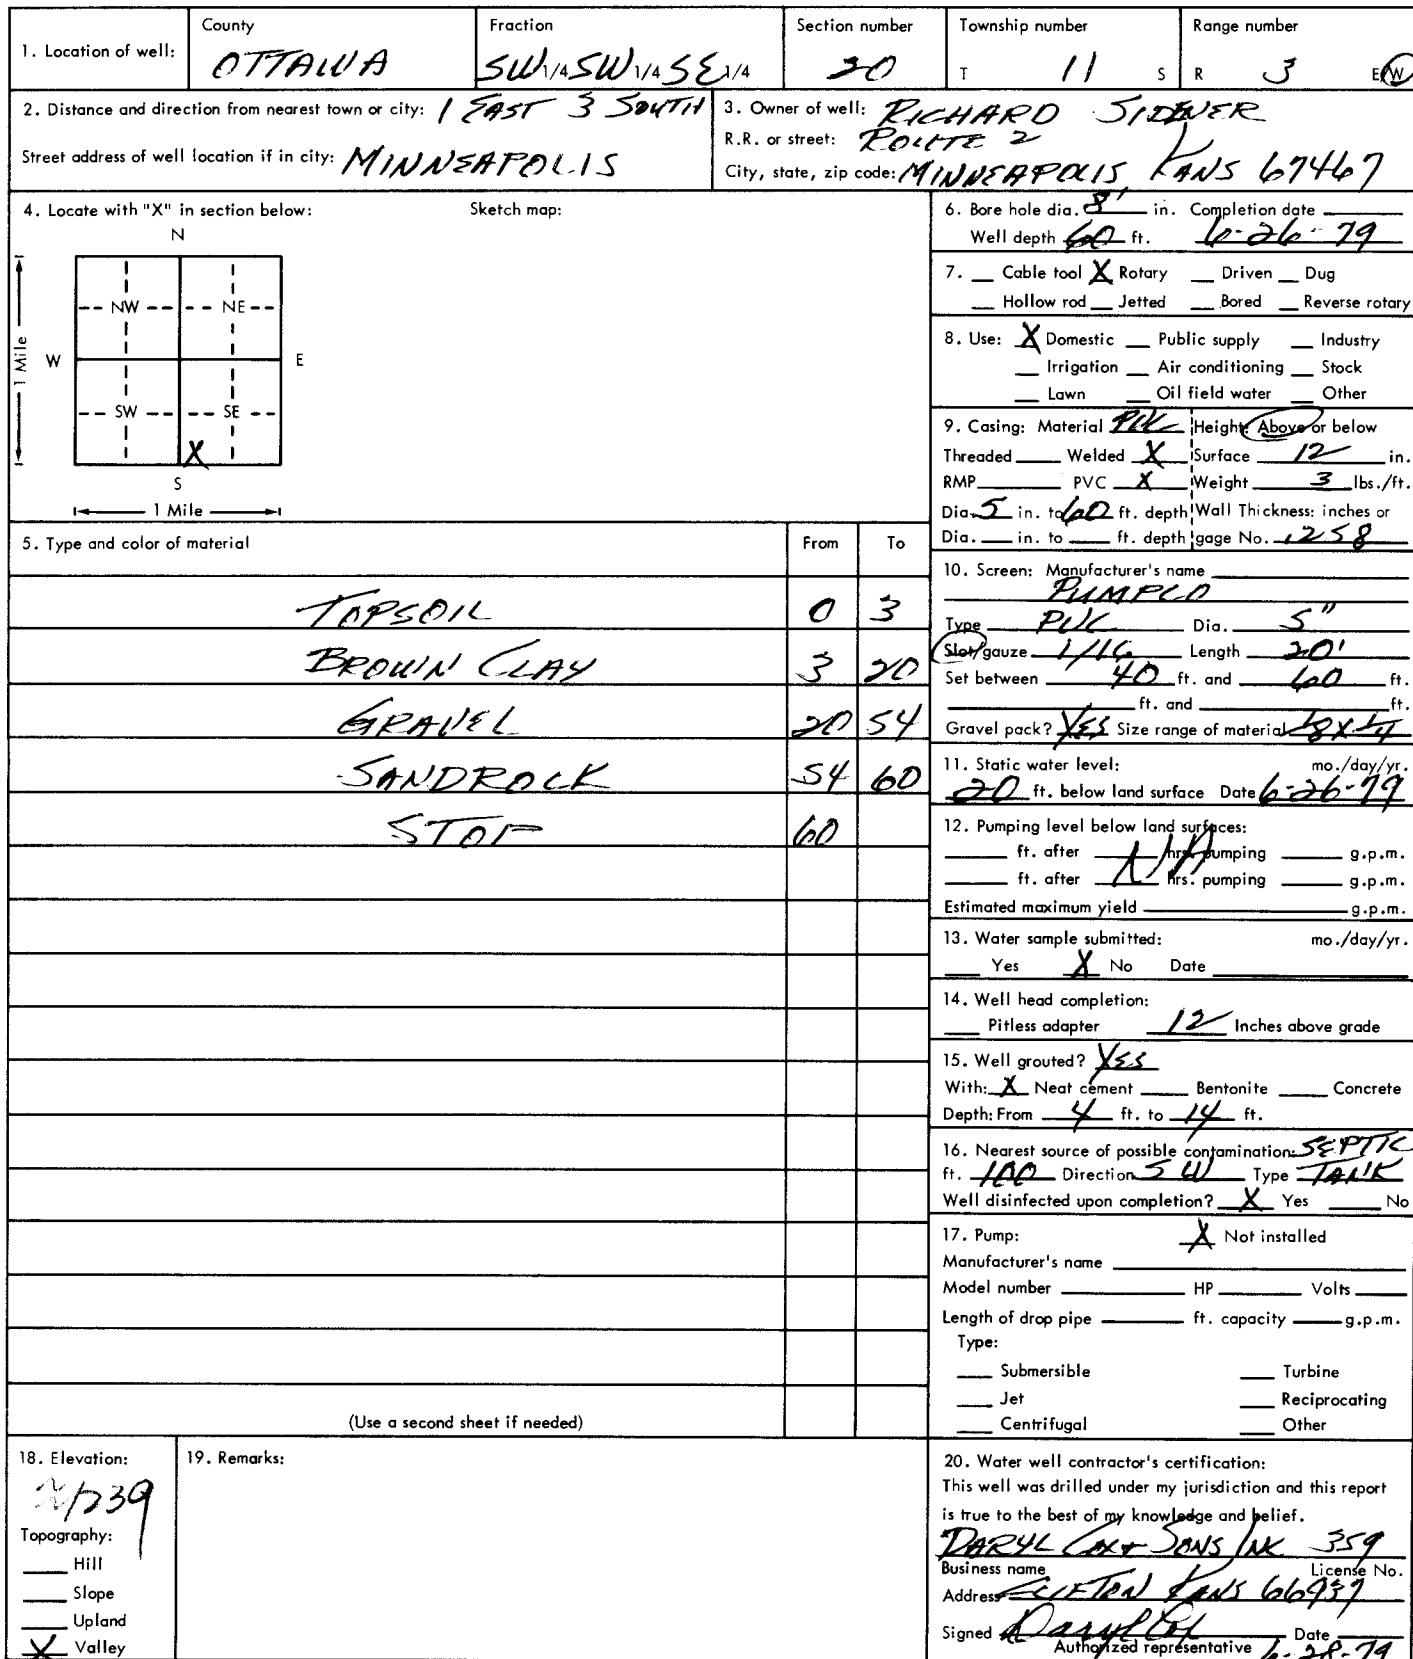 1. Location of well:
County
OTTAWA
Fraction
SW 1/4 SW 1/4 SE 1/4
Section number
20
Township number
T 11 S
Range number
R 3 E/W
2. Distance and direction from nearest town or city: 1 EAST 3 SOUTH
Street address of well location if in city: MINNEAPOLIS
3. Owner of well: RICHARD SIDENER
R.R. or street: ROUTE 2
City, state, zip code: MINNEAPOLIS KANS 67467
4. Locate with "X" in section below:
Sketch map:
N
NW NE
W E
1 Mile
SW SE
X
S
1 Mile
5. Type and color of material From To
TOPSOIL 0 3
BROWN CLAY 3 20
GRAVEL 20 54
SANDROCK 54 60
STOP 60
(Use a second sheet if needed)
6. Bore hole dia. 8" in. Completion date
Well depth 60 ft. 6-26-79
7. Cable tool X Rotary Driven Dug
Hollow rod Jetted Bored Reverse rotary
8. Use: X Domestic Public supply Industry
Irrigation Air conditioning Stock
Lawn Oil field water Other
9. Casing: Material PVC Height: Above or below
Threaded Welded X Surface 12 in.
RMP PVC X Weight 3 lbs./ft.
Dia. 5 in. to 60 ft. depth Wall Thickness: inches or
Dia. in. to ft. depth gage No. .258
10. Screen: Manufacturer's name
PUMPCO
Type PVC Dia. 5"
Slot/gauze 1/16 Length 20'
Set between 40 ft. and 60 ft.
ft. and ft.
Gravel pack? YES Size range of material 1/8 X 1/4
11. Static water level: mo./day/yr.
20 ft. below land surface Date 6-26-79
12. Pumping level below land surfaces:
ft. after hrs. pumping g.p.m.
NA
ft. after hrs. pumping g.p.m.
Estimated maximum yield g.p.m.
13. Water sample submitted: mo./day/yr.
Yes X No Date
14. Well head completion:
Pitless adapter 12 Inches above grade
15. Well grouted? YES
With: X Neat cement Bentonite Concrete
Depth: From 4 ft. to 14 ft.
16. Nearest source of possible contamination: SEPTIC
ft. 100 Direction SW Type TANK
Well disinfected upon completion? X Yes No
17. Pump: X Not installed
Manufacturer's name
Model number HP Volts
Length of drop pipe ft. capacity g.p.m.
Type:
Submersible Turbine
Jet Reciprocating
Centrifugal Other
18. Elevation:
Topography:
Hill
Slope
Upland
X Valley
19. Remarks:
20. Water well contractor's certification:
This well was drilled under my jurisdiction and this report
is true to the best of my knowledge and belief.
DARYL COX + SONS INC 359
Business name License No.
Address CLIFTON KANS 66937
Signed Daryl Cox Date
Authorized representative 6-28-79